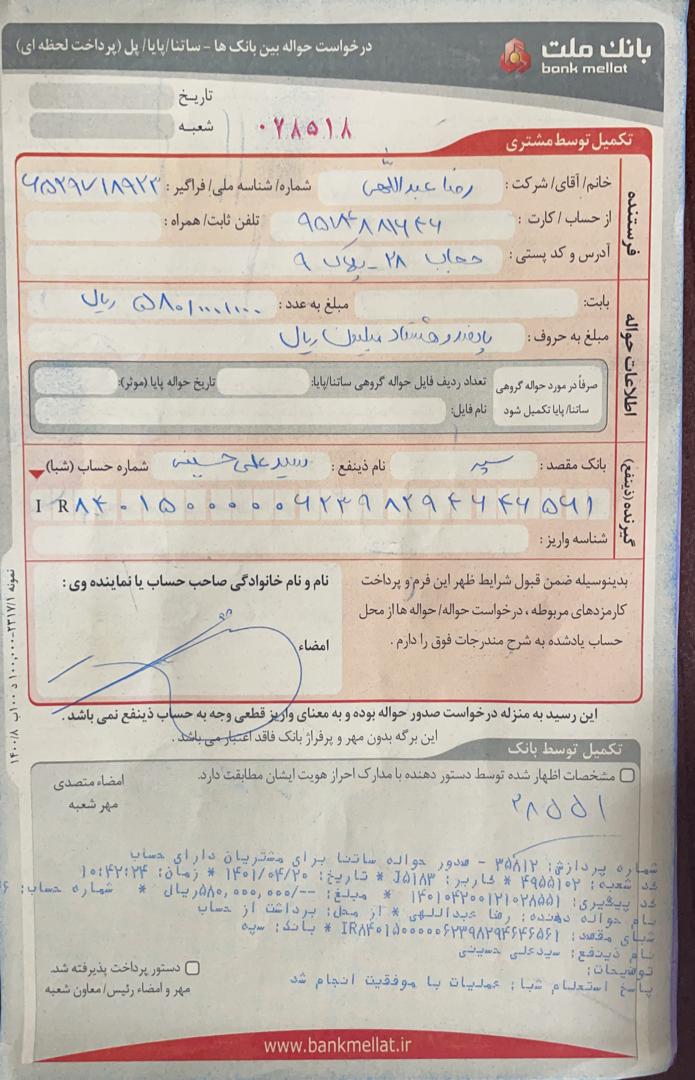 درخواست حواله بین بانک ها - ساتنا/پایا/ پل (پرداخت لحظه ای)
بانک ملت
bank mellat
تاریخ
شعبه
۰۷۸۵۱۸
تکمیل توسط مشتری
فرستنده
خانم/ آقای/ شرکت : رضا عبداللهی شماره/ شناسه ملی/ فراگیر :
از حساب / کارت : تلفن ثابت/ همراه :
آدرس و کد پستی : حجاب ۲۸ - پلاک ۹
اطلاعات حواله
بابت: مبلغ به عدد : ۵۸۰/۰۰۰/۰۰۰ ریال
مبلغ به حروف : پانصد و هشتاد میلیون ریال
صرفاً در مورد حواله گروهی ساتنا/ پایا تکمیل شود
تعداد ردیف فایل حواله گروهی ساتنا/پایا: تاریخ حواله پایا (موثر):
نام فایل:
گیرنده (ذینفع)
بانک مقصد : سپه نام ذینفع : سید علی حسینی شماره حساب (شبا)
IR ۸۴۰۱۵۰۰۰۰۰۶۲۳۹۸۲۹۴۶۴۶۵۶۱
شناسه واریز :
بدینوسیله ضمن قبول شرایط ظهر این فرم و پرداخت
کارمزدهای مربوطه ، درخواست حواله/ حواله ها از محل
حساب یادشده به شرح مندرجات فوق را دارم .
نام و نام خانوادگی صاحب حساب یا نماینده وی :
امضاء
این رسید به منزله درخواست صدور حواله بوده و به معنای واریز قطعی وجه به حساب ذینفع نمی باشد .
این برگه بدون مهر و پرفراژ بانک فاقد اعتبار می باشد .
نمونه ۲۳۱۷/۱-۱۰۰,۰۰۰ د ۱۰۰ب ۱۴۰۰/۸
تکمیل توسط بانک
مشخصات اظهار شده توسط دستور دهنده با مدارک احراز هویت ایشان مطابقت دارد.
امضاء متصدی
مهر شعبه
۲۸۵۵۱
شماره پردازش: ۳۵۸۱۲ - صدور حواله ساتنا برای مشتریان دارای حساب
کد شعبه: ۴۹۵۵۱۰۲ * کاربر: J۵۱۸۳ * تاریخ: ۱۴۰۱/۰۴/۲۰ * زمان: ۱۰:۴۲:۲۴
کد پیگیری: ۱۴۰۱۰۴۲۰۰۱۲۱۰۲۸۵۵۱ * مبلغ: --/۵۸۰,۰۰۰,۰۰۰ریال * شماره حساب:
نام حواله دهنده: رضا عبداللهی * از محل: برداشت از حساب
شبای مقصد: IR۸۴۰۱۵۰۰۰۰۰۶۲۳۹۸۲۹۴۶۴۶۵۶۱ * بانک: سپه
نام ذینفع: سیدعلی حسینی
توضیحات:
پاسخ استعلام شبا: عملیات با موفقیت انجام شد
دستور پرداخت پذیرفته شد.
مهر و امضاء رئیس/ معاون شعبه
www.bankmellat.ir